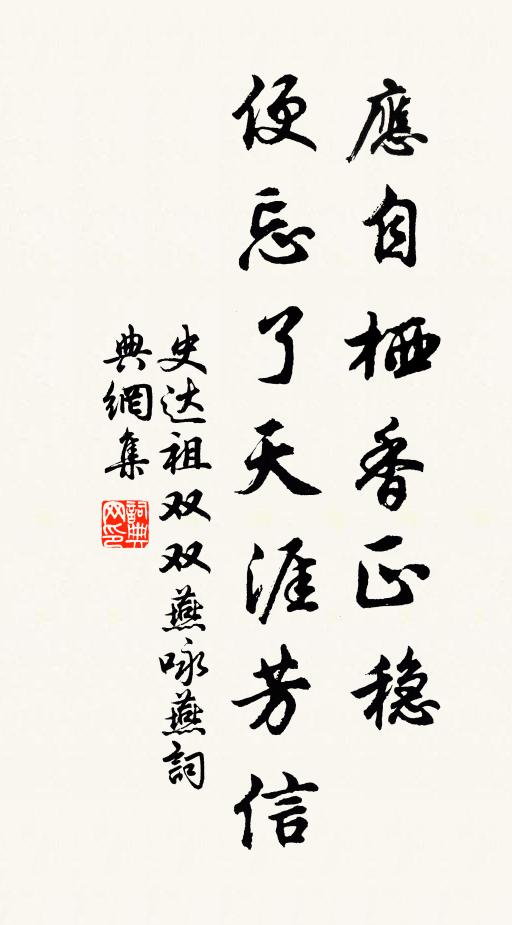 應自栖香正稳
便忘了天涯芳信
史达祖双双燕咏燕詞
典網集
詞典
网印